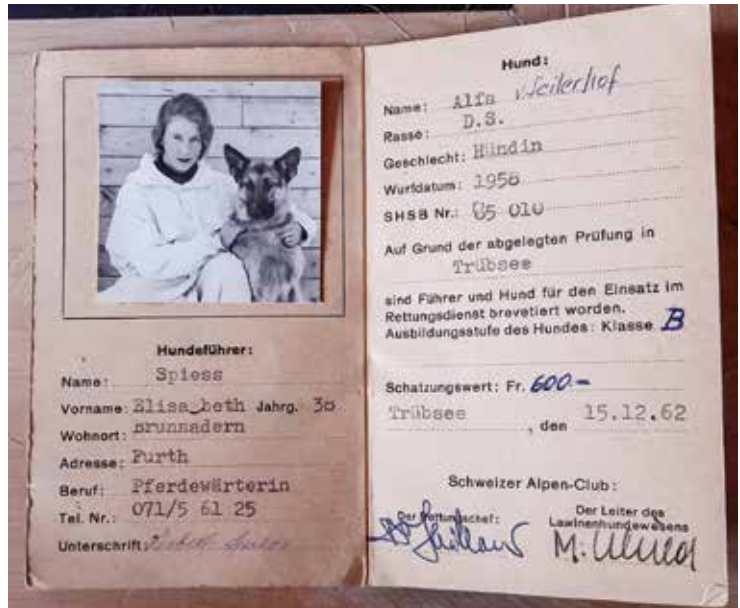 Hundeführer:
Name: Spiess
Vorname: Elisabeth Jahrg. 38
Wohnort: Brunnadern
Adresse: Furth
Beruf: Pferdewärterin
Tel. Nr.: 071/5 61 25
Unterschrift:
Hund:
Name: Alfa v. Seilerhof
Rasse: D.S.
Geschlecht: Hündin
Wurfdatum: 1958
SHSB Nr.: 010
Auf Grund der abgelegten Prüfung in
Trübsee
sind Führer und Hund für den Einsatz im
Rettungsdienst brevetiert worden.
Ausbildungsstufe des Hundes: Klasse B
Schatzungswert: Fr. 600.-
Trübsee, den 15.12.62
Schweizer Alpen-Club:
Der Rettungschef:
Der Leiter des
Lawinenhundewesens